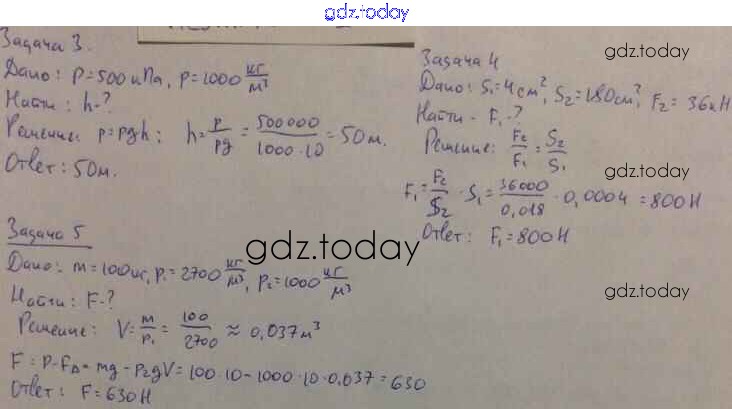 gdz.today
Задача 3.
Дано: P=500кПа, ρ=1000 кг/м³
Найти: h-?
Решение: p=ρgh; h=p/ρg = 500000/1000·10 = 50м.
Ответ: 50м.
Задача 4
gdz.today
Дано: S₁=4см², S₂=180см², F₂=36кН
Найти - F₁-?
Решение: F₂/F₁=S₂/S₁
gdz.today
F₁=F₂/S₂·S₁=36000/0,018·0,0004=800Н
Ответ: F₁=800Н
Задача 5
gdz.today
Дано: m=100кг, ρ₁=2700 кг/м³, ρ₂=1000 кг/м³
Найти: F-?
Решение: V=m/ρ₁=100/2700≈0,037м³
F=P-Fₐ=mg-ρ₂gV=100·10-1000·10·0,037=630
Ответ: F=630Н
gdz.today